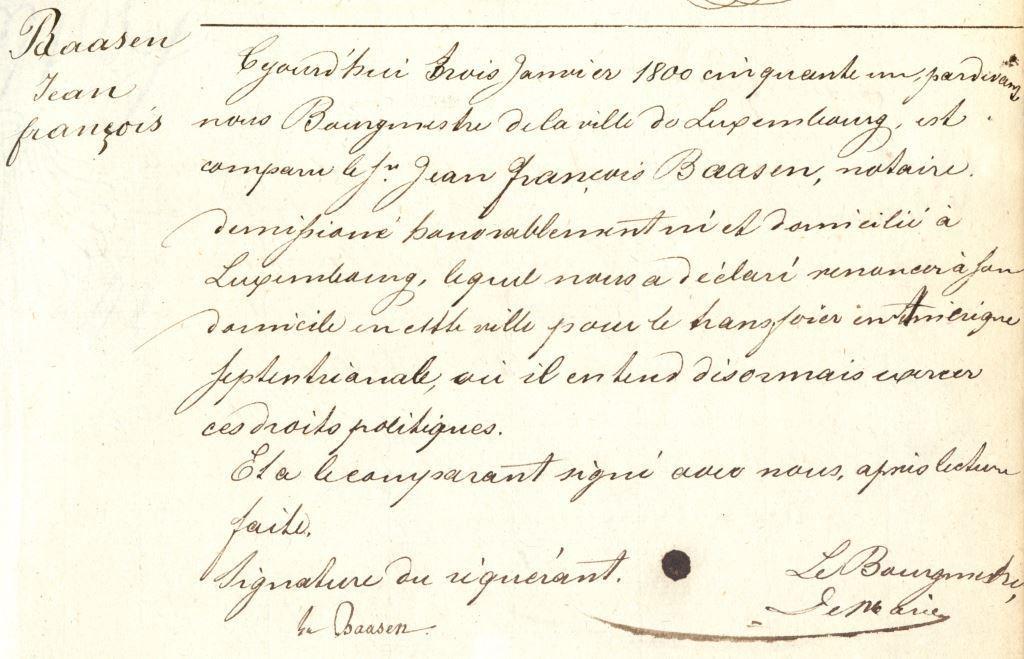 Baasen
Jean
françois
Cejourd'hui trois Janvier 1800 cinquante un, pardevant
nous Bourgmestre de la ville de Luxembourg, est
comparu le Sr. Jean françois Baasen, notaire
demissioné honorablement né et domicilié à
Luxembourg, lequel nous a déclaré renoncer à son
domicile en cette ville pour le transférer en Amérique
septentrionale, où il entend désormais exercer
ces droits politiques.
Et a le comparant signé avec nous, après lecture
faite.
Signature du réquérant. Le Bourgmestre,
Baasen.